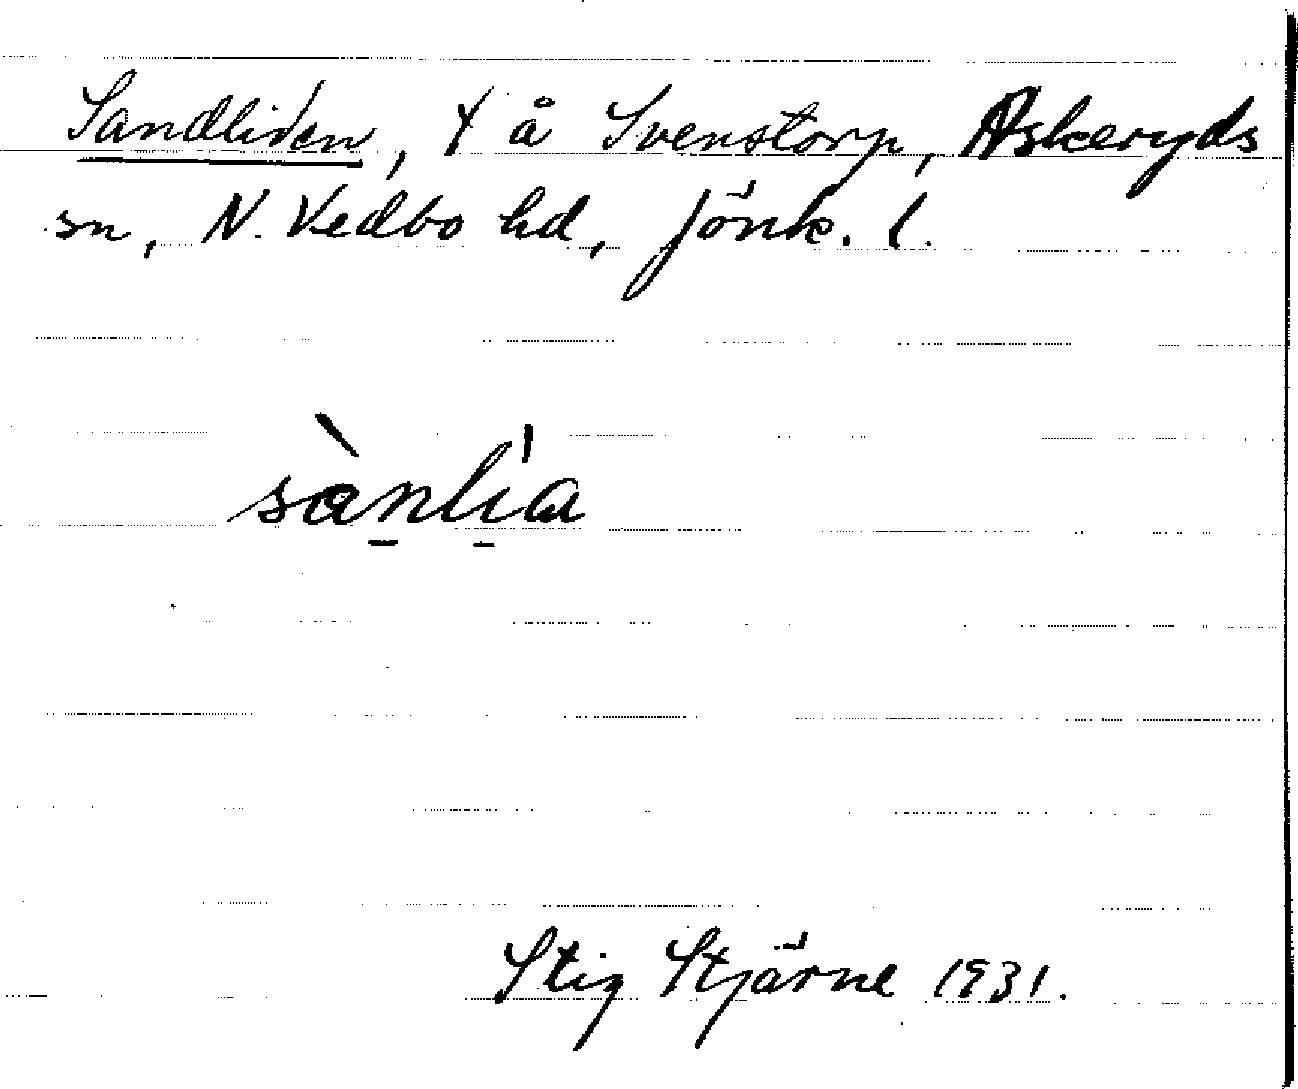 Sandliden, t å Svenstorp, Askeryds
sn, N. Vedbo hd, Jönk. l.
sànlia
Stig Stjärne 1931.